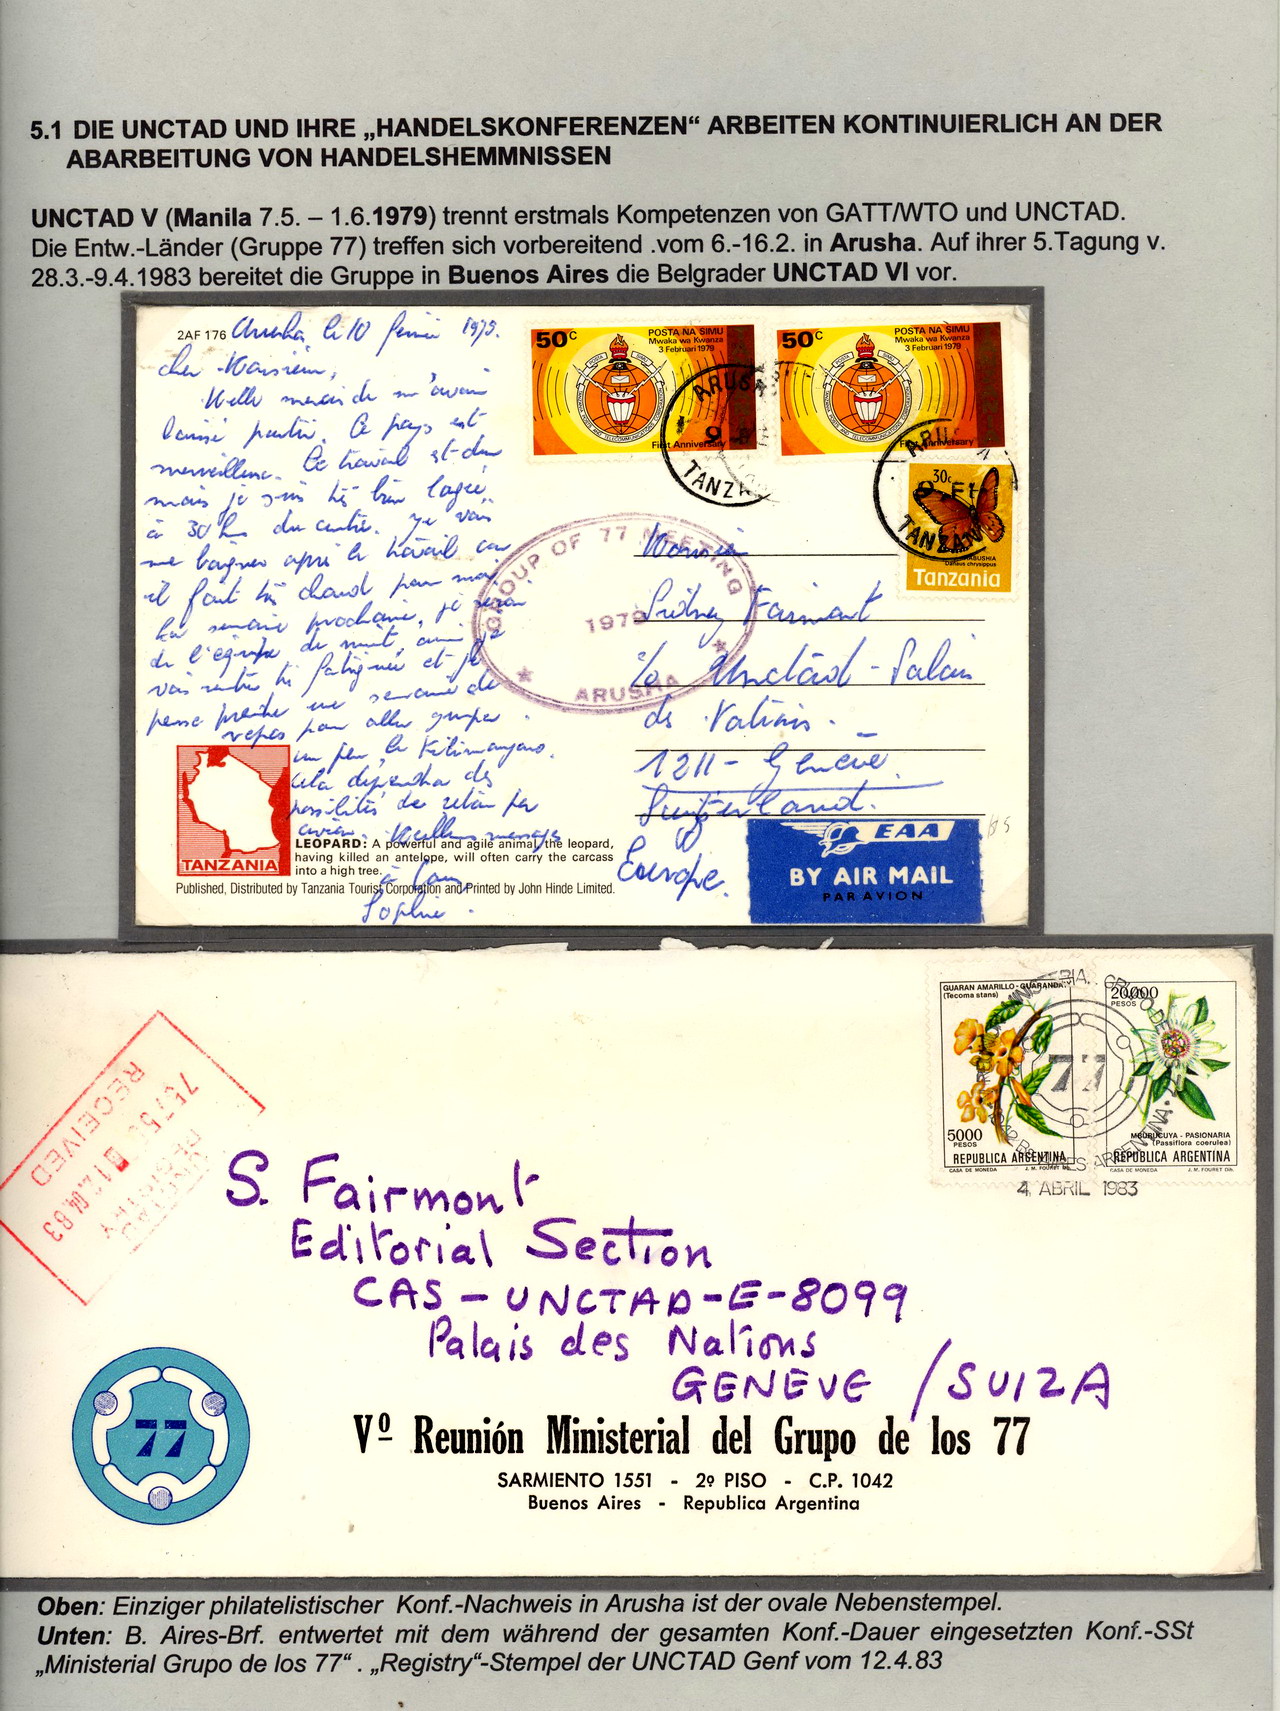 5.1 DIE UNCTAD UND IHRE „HANDELSKONFERENZEN“ ARBEITEN KONTINUIERLICH AN DER
ABARBEITUNG VON HANDELSHEMMNISSEN
UNCTAD V (Manila 7.5. – 1.6.1979) trennt erstmals Kompetenzen von GATT/WTO und UNCTAD.
Die Entw.-Länder (Gruppe 77) treffen sich vorbereitend .vom 6.-16.2. in Arusha. Auf ihrer 5.Tagung v.
28.3.-9.4.1983 bereitet die Gruppe in Buenos Aires die Belgrader UNCTAD VI vor.
2AF 176 Arusha, le 10 février 1979.
Cher Monsieur,
Mille mercis de m'avoir
laissé partir. Ce pays est
merveilleux. Le travail est dur
mais je suis très bien logée,
à 30 km du centre. Je vais
me baigner après le travail car
il fait très chaud pour moi
La semaine prochaine, je serai
de l'équipe de nuit, ainsi je
vais rentrer très fatiguée et je
pense prendre une semaine de
repos pour aller grimper
un peu le Kilimanjaro.
Cela dépendra des
possibilités de retour par
avion. Meilleurs messages
à tous
Sophie.
50c
POSTA NA SIMU
Mwaka wa Kwanza
3 Februari 1979
First Anniversary
50c
POSTA NA SIMU
Mwaka wa Kwanza
3 Februari 1979
First Anniversary
ARUSHA
9
TANZA
ARU
9 FE
TANZAN
30c
Danaus chrysippus
Tanzania
GROUP OF 77 MEETING
1979
ARUSHA
Monsieur
Sidney Fairmont
c/o Unctad - Palais
des Nations.
1211 - Genève.
Switzerland.
Europe.
TANZANIA
LEOPARD: A powerful and agile animal, the leopard,
having killed an antelope, will often carry the carcass
into a high tree.
Published, Distributed by Tanzania Tourist Corporation and Printed by John Hinde Limited.
EAA
BY AIR MAIL
PAR AVION
GUARAN AMARILLO - GUARANDAY
(Tecoma stans)
5000
PESOS
REPUBLICA ARGENTINA
CASA DE MONEDA J. M. FOURET Dib.
20.000
PESOS
MBURUCUYA - PASIONARIA
(Passiflora coerulea)
REPUBLICA ARGENTINA
CASA DE MONEDA J. M. FOURET Dib.
77
4 ABRIL 1983
RECEIVED
12.04.83
UNCTAD
REGISTRY
S. Fairmont
Editorial Section
CAS - UNCTAD - E - 8099
Palais des Nations
GENEVE / SUIZA
77
Vº Reunión Ministerial del Grupo de los 77
SARMIENTO 1551 - 2º PISO - C.P. 1042
Buenos Aires - Republica Argentina
Oben: Einziger philatelistischer Konf.-Nachweis in Arusha ist der ovale Nebenstempel.
Unten: B. Aires-Brf. entwertet mit dem während der gesamten Konf.-Dauer eingesetzten Konf.-SSt
„Ministerial Grupo de los 77“ . „Registry“-Stempel der UNCTAD Genf vom 12.4.83